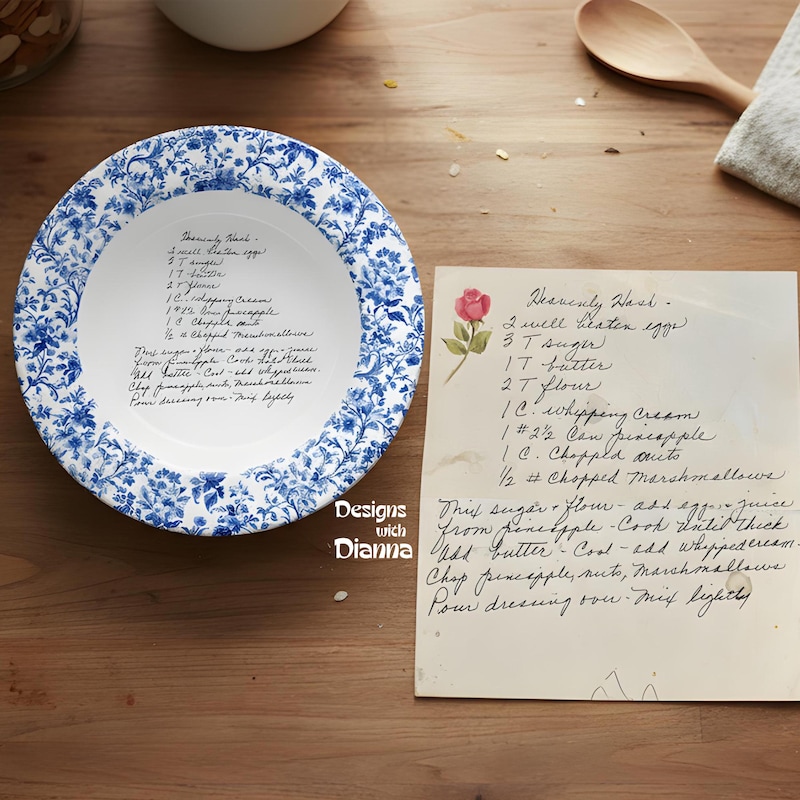 Heavenly Hash -
2 well beaten eggs
3 T suger
1 T
2 T
1 C. whipping Cream
1 #2½ Can pineapple
1 C Chopped nuts
½ # Chopped Marshmallows
Mix sugar + flour - add eggs + juice
from pineapple - Cook until thick
Add butter - Cool - add whipped cream.
Chop pineapple, nuts, Marshmallows
Pour dressing over - Mix lightly
Designs
with
Dianna
Heavenly Hash -
2 well beaten eggs
3 T suger
1 T butter
2 T flour
1 C. whipping Cream
1 #2½ Can pineapple
1 C. Chopped nuts
½ # Chopped Marshmallows
Mix sugar + flour - add eggs + juice
from pineapple - Cook until thick
Add butter - Cool - add whipped cream.
Chop pineapple, nuts, Marshmallows
Pour dressing over - Mix lightly